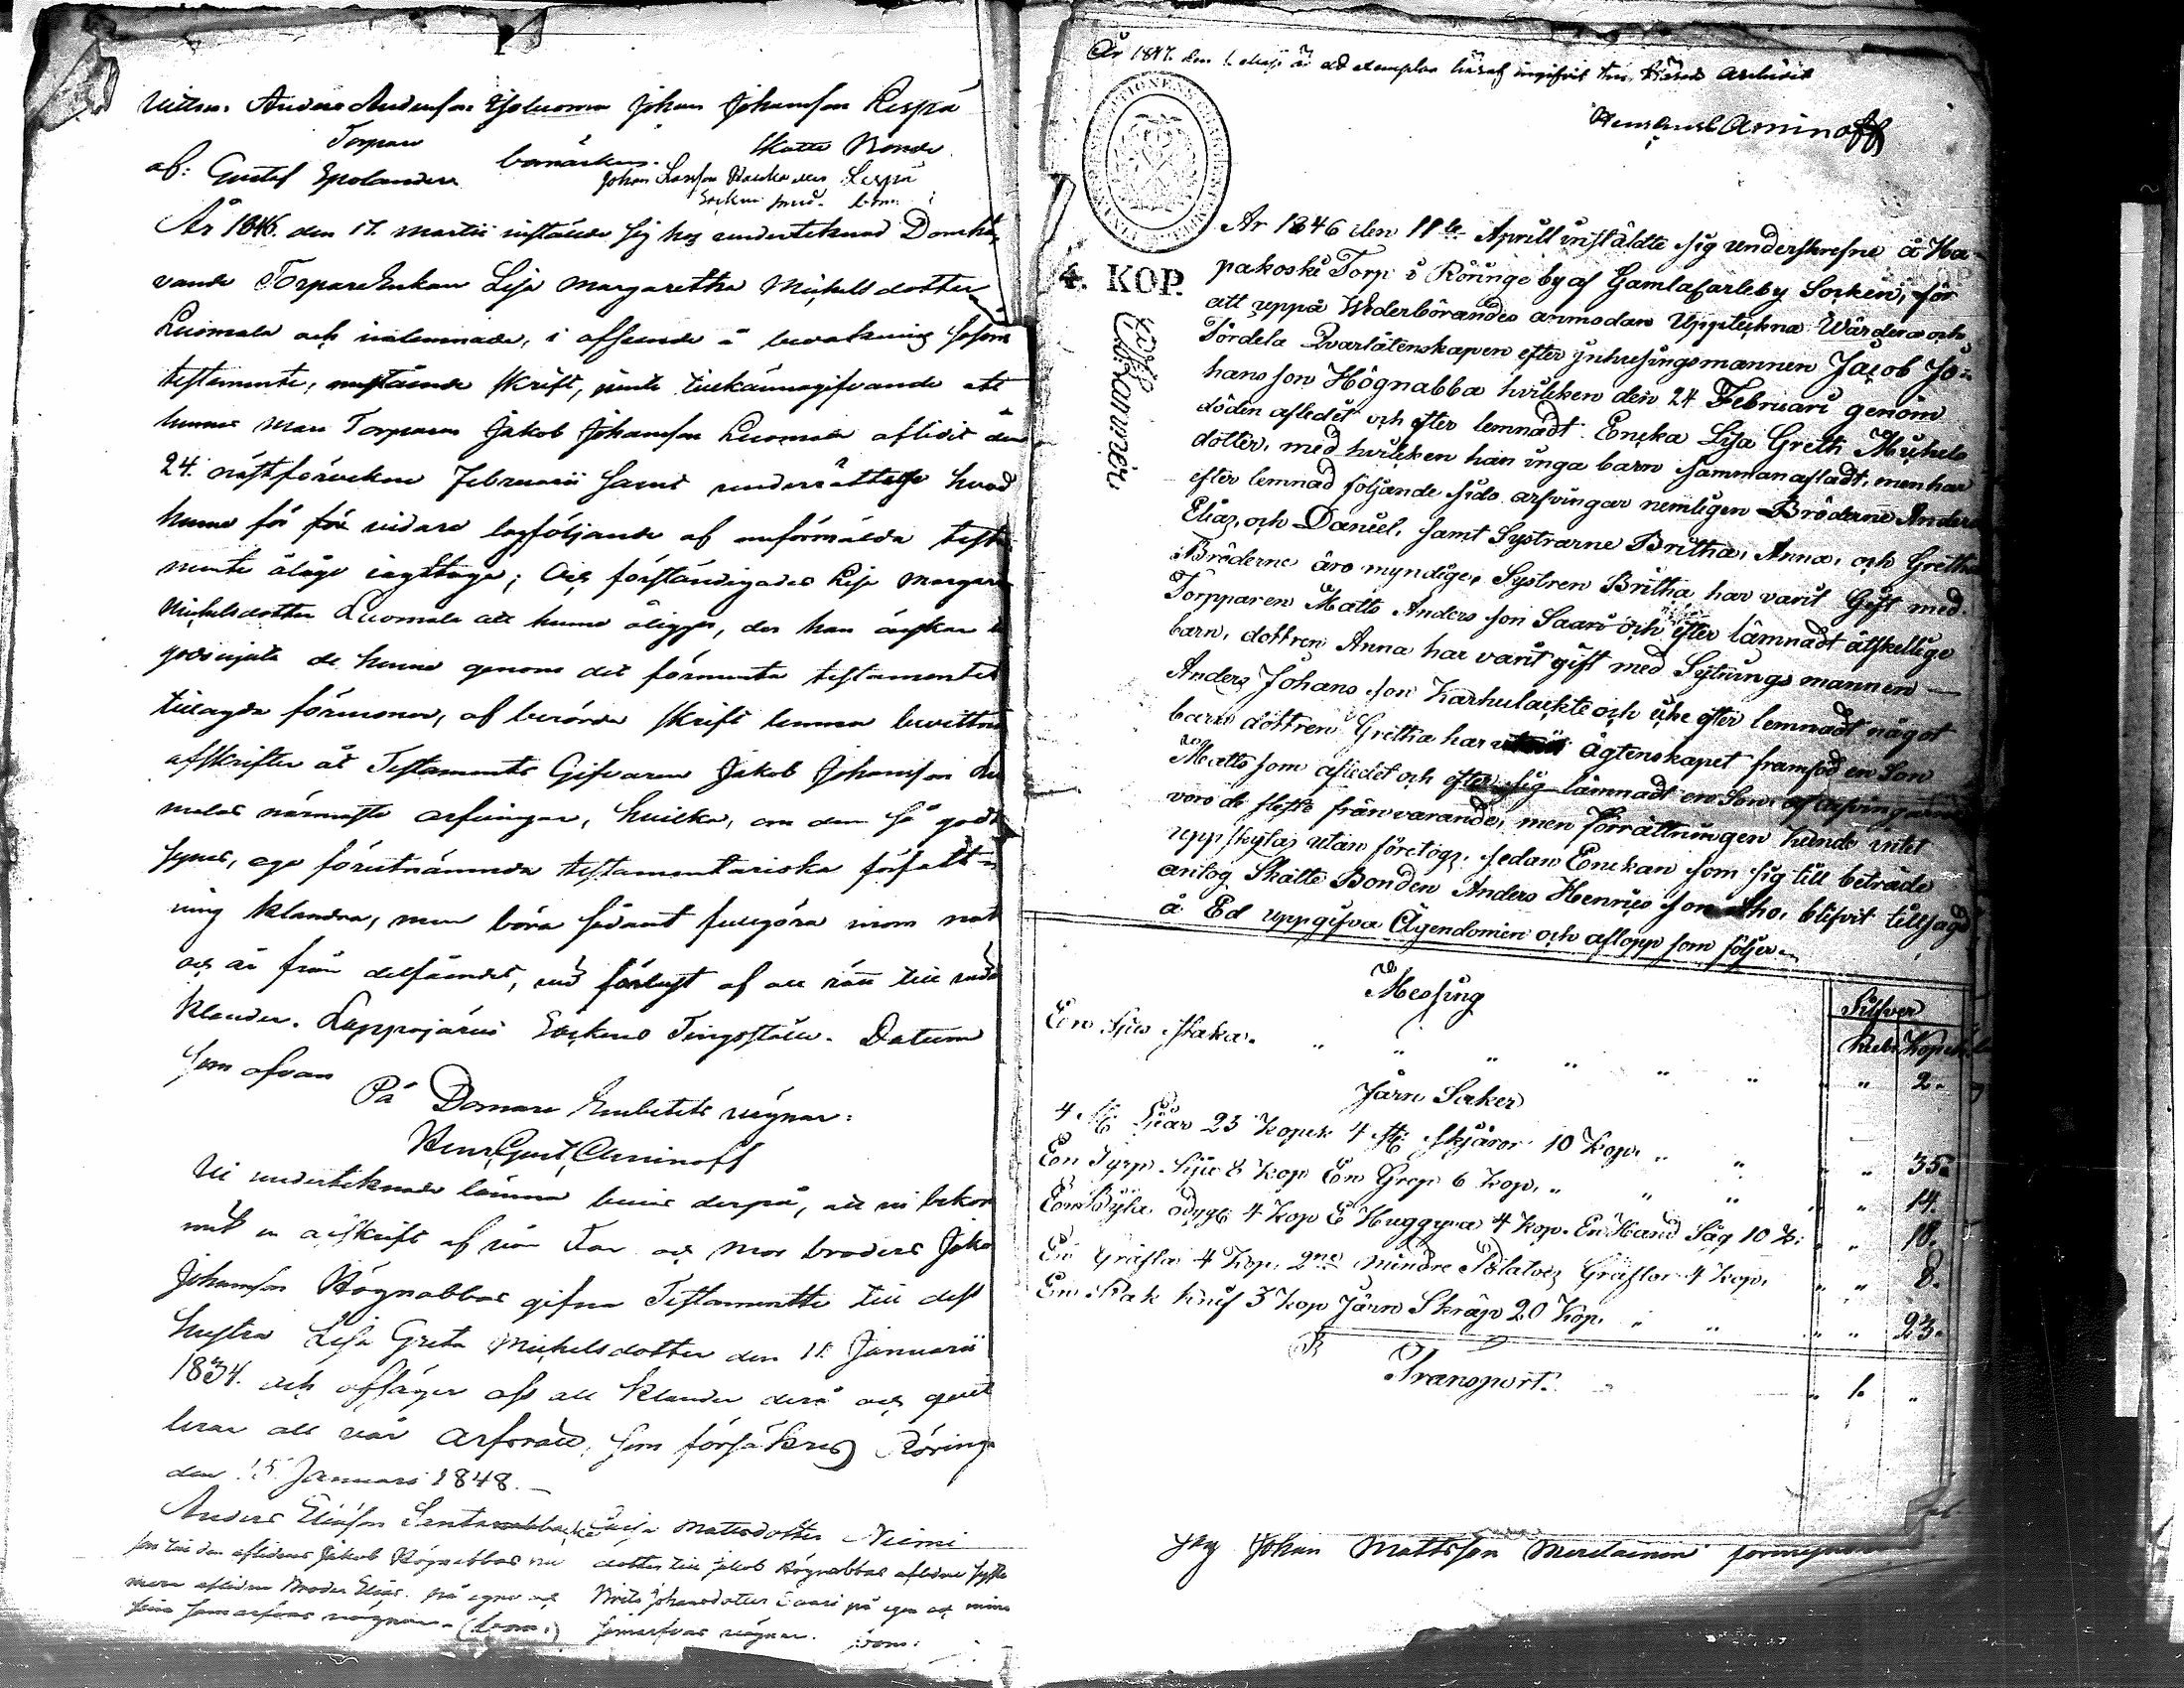 Vittna: Anders Andersson Johan Johansson Lespä
Torpare bomärken. Skatte Bonde
af: Gustaf Johan Larsson Lespä
År 1846. den 17. Martii instälde sig hos undertecknad Domha-
vande TorpareEnkan Lisa Margaretha Michelsdotter
Luomala och inlemnade, i afseende å bevakning såsom
testamente, skrift, jemte tillkännagifvande att
hennes man Torparen Jakob Johansson Luomala aflidit den
24. nästförvekne Februarii samt hvad
henne för vidare lagföljande af omförmälda testa
mente åläge iagttaga; Och förständigades Lisa Margare
Michelsdotter Luomala att henne åligger, der hon önskar
de henne genom det förmenta testamentet
tillagda förmoner, af berörde skrift lemna bevittnad
afskrifter åt Testaments Gifvaren Jakob Johansson Luo
malas närmaste arfvingar, hvilka, om dem så godt
synes, ega förutnämnda testamentariska författ-
ning klandra, men böra sådant fullgöra inom natt
och år från delfåendet, vid förlust af all rätt till
klander. Lappajärvi Sockens Tingsställe. Datum
som ofvan
På Domare Embetets vägnar:
Henr. Gust. Aminoff
Vi undertecknade lämna bevis derpå, att vi bekom
mit en afskrift af vår Far och Mor broders Jakob
Johansson Högnabbas gifna Testamentte till dess
hustru Lisa Greta Michelsdotter den 11 Januarii
1834. och afsäger oss all klander derå och qvit
terar all vår arfsrätt, som försäkras Röringe
den 15 Januari 1848.
Anders Eliasson Maija Mattsdotter Niemi
son till den aflidnes Jakob Högnabbas nu dotter till Jakob Högnabbas aflidne syster
mera aflidne Broder Elias. på egna och Brita Johansdotter Saari på egen och mina
sina samarfvas vägnar. (bom.) samarfvas vägnar. bom.
År 1847. den 1 Maji är ett exemplar häraf ingifvit till Härads Archivet
Henr. Gust. Aminoff
4. KOP.
År 1846 den 11te Aprill instäldte sig underskrefne å Ha-
pakoski Torp i Röringe by af Gamlacarleby Socken, för
att uppå Wederbörandes anmodan Uppteckna Wärdera och
Fördela Qvarlåtenskapen efter Inhusingsmannen Jacob Jo-
hansson Högnabba hvilken den 24 Februari genom
döden afledet och efter lemnadt Encka Lisa Greth Michels
dotter, med hvilcken han inga barn sammanafladt, men har
efter lemnad följande sido arfvingar nemligen Bröderne Anders
Elias, och Daniel, samt Systrarne Britha, Anna, och Gretha
Bröderne äro myndige, Systren Britha har varit Gift med
Torpparen Matts Andersson Saari och efter lämnadt åtskellige
barn, dottren Anna har varit gift med Sytningsmannen
Anders Johansson Karhulackte och icke efter lemnadt något
barn dottren Gretha har Ägtenskapet framföd en Son
Matts som afledet och efter sig lämnadt en Son af arfvingarne
voro de fleste frånvarande, men Förrättningen kunde intet
uppskjtas utan företogs, sedan Enckan som sig till beträde
antog Skatte Bonden Anders Henricsson Aho, blifvit tillsagd
å Ed uppgifva Ägendomen och aflopp som följer.
Silfver
Messing Rub. Kopek
En ljus staka. " " " " " " " " 2.
Järn Saker
4 St Liar 25 Kopek 4 St Skjäror 10 Kop. " " " " 35.
En 8 Kop En Grep 6 Kop. " " " " " 14.
4 Kop E Huggyxa 4 Kop. En Hand Såg 10 K: " " 18.
En Gräfta 4 Kop. 2ne mindre Gräftor 4 Kop. " " 8.
En knif 3 Kop Järn Skräp 20 Kop. " " " " 23.
Transport. " " 1. "
Jag Johan Mattsson